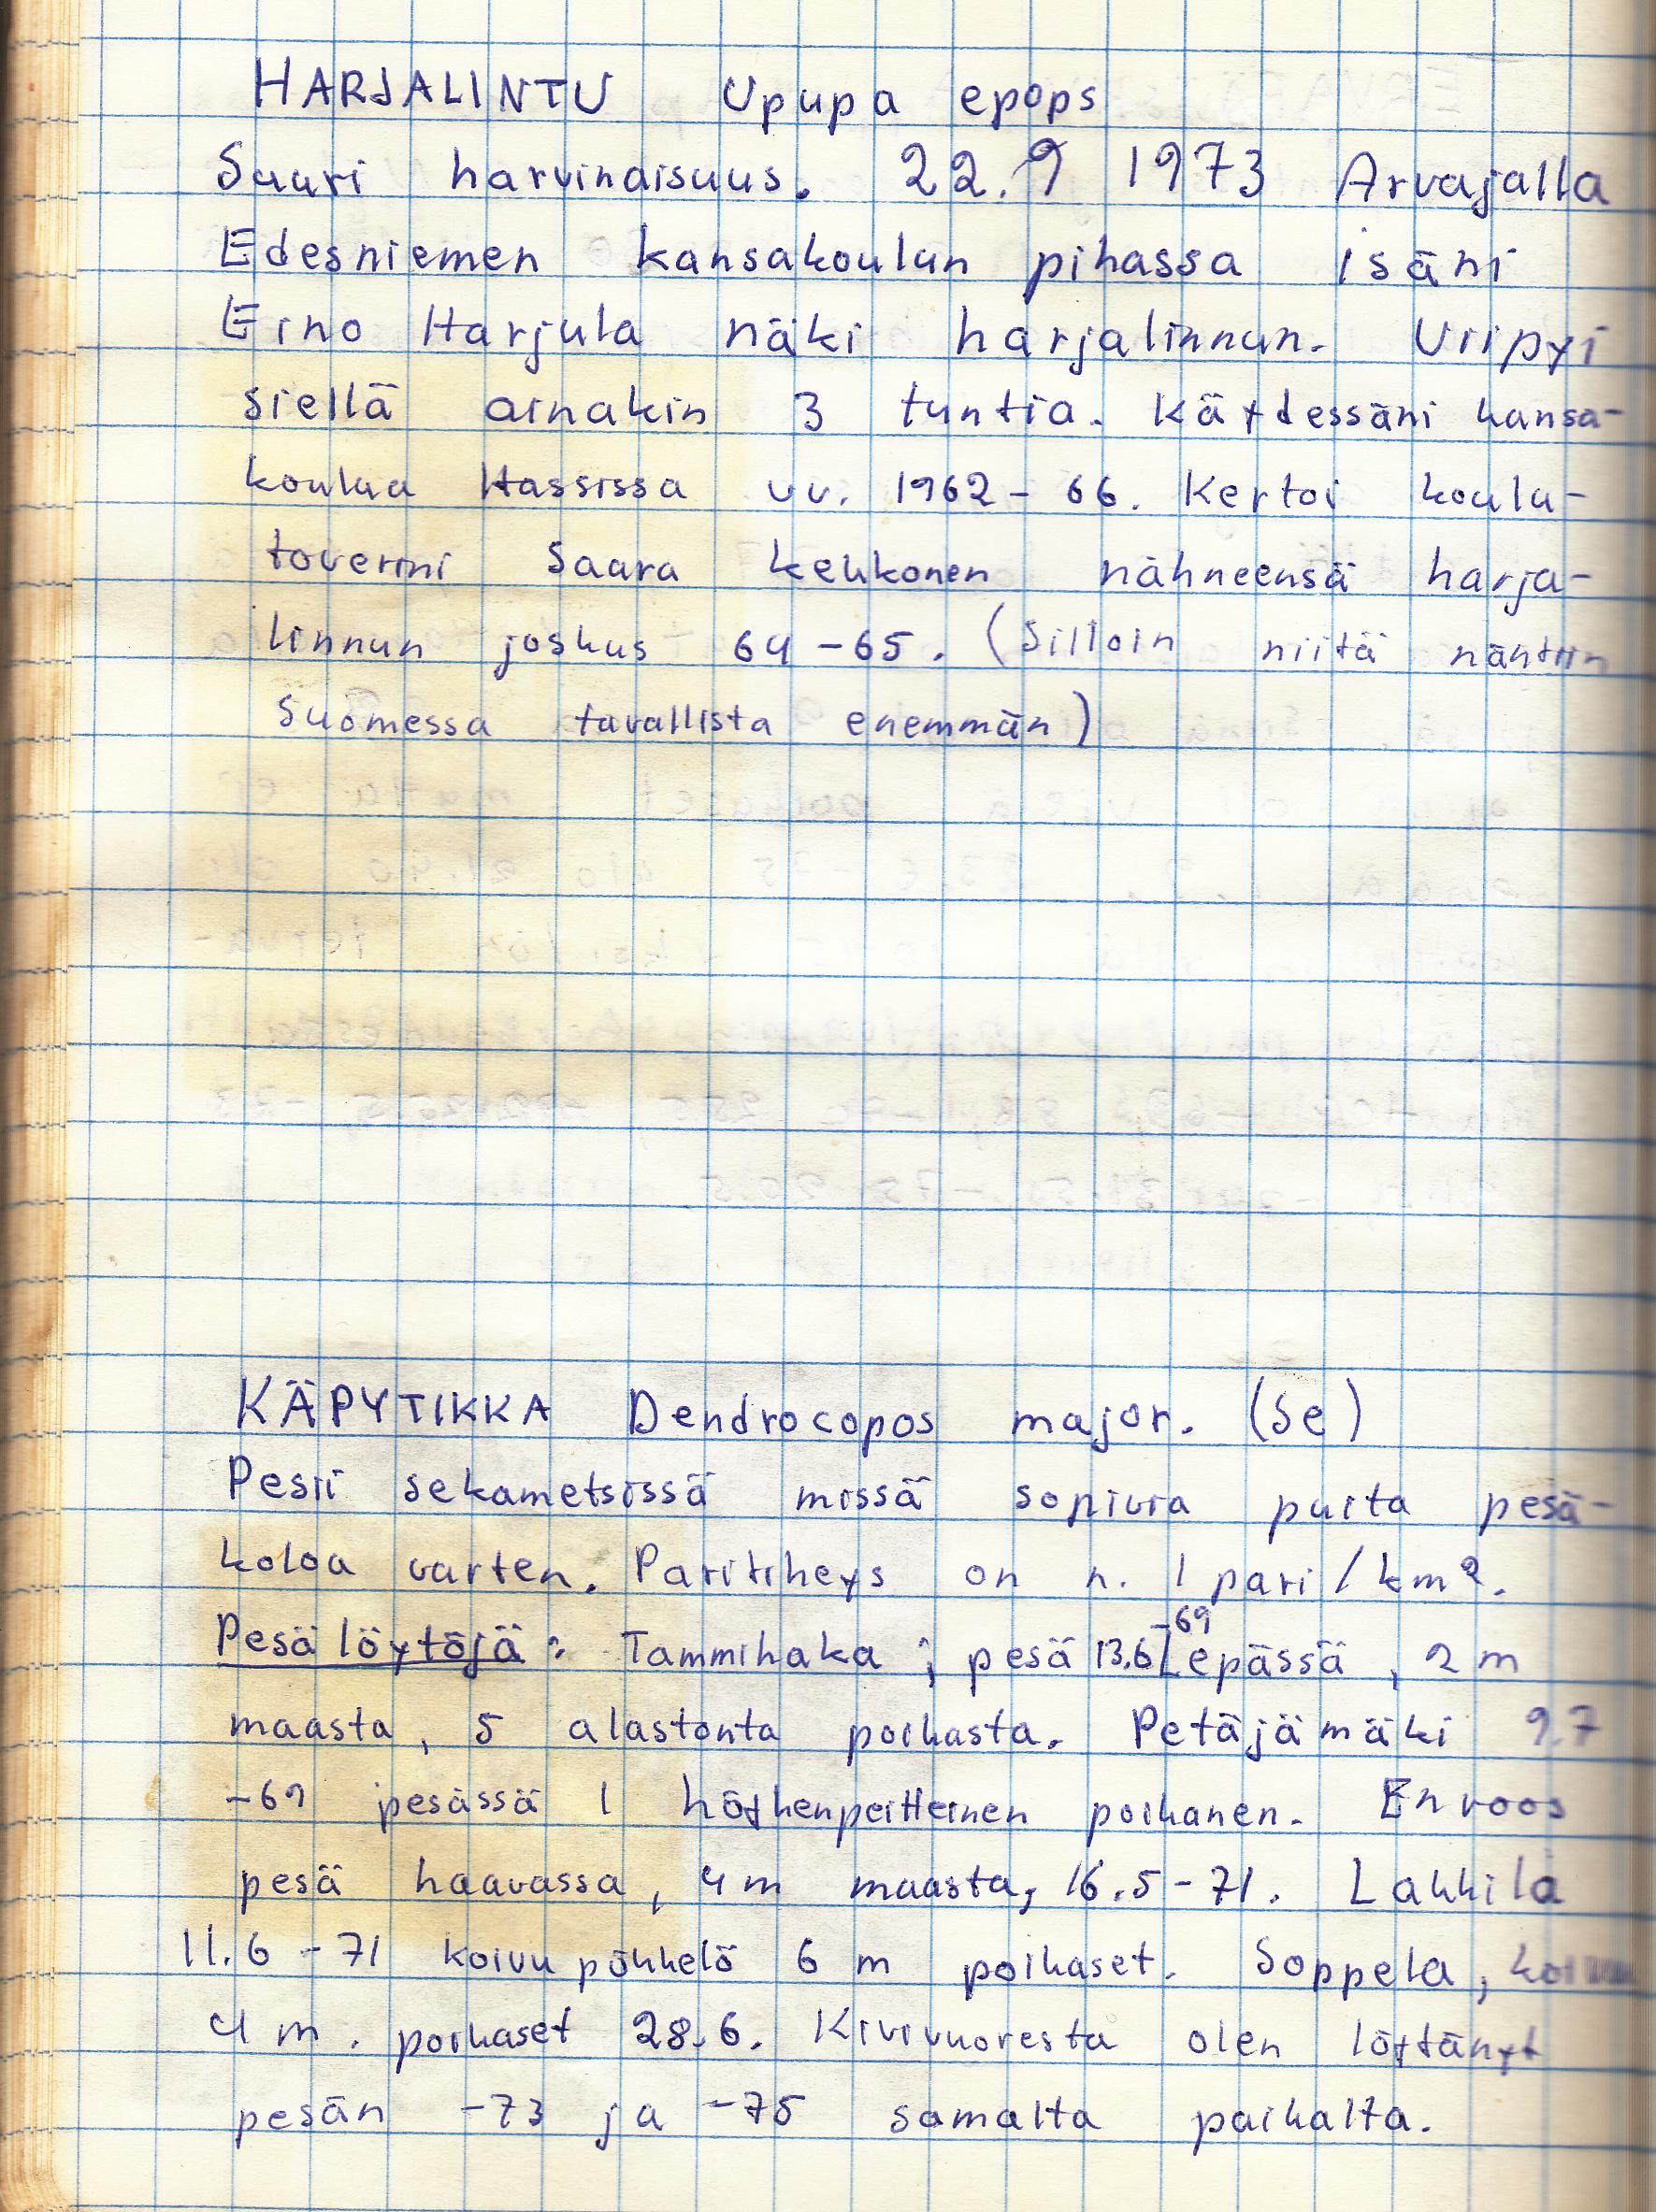 HARJALINTU Upupa epops
Suuri harvinaisuus. 22.9 1973 Arvajalla
Edesniemen kansakoulun pihassa isäni
Eino Harjula näki harjalinnun. Viipyi
siellä ainakin 3 tuntia. Käydessäni kansa-
koulua Hassissa vv. 1962-66. Kertoi koulu-
toverini Saara Keukonen nähneensä harja-
linnun joskus 64-65. (Silloin niitä nähtiin
Suomessa tavallista enemmän)
KÄPYTIKKA Dendrocopos major. (Se)
Pesii sekametsissä missä sopivia puita pesä-
koloa varten. Paritiheys on n. 1 pari/km2.
Pesälöytöjä: Tammihaka; pesä 13.6 -69 Lepässä, 2 m
maasta, 5 alastonta poikasta. Petäjämäki 9.7
-69 pesässä 1 höyhenpeitteinen poikanen. Enroos
pesä haavassa, 4 m maasta, 16.5-71. Laukila
11.6 -71 koivupökkelö 6 m poikaset. Soppela,
4 m. poikaset 28.6. Kivivuoresta olen löytänyt
pesän -73 ja -75 samalta paikalta.